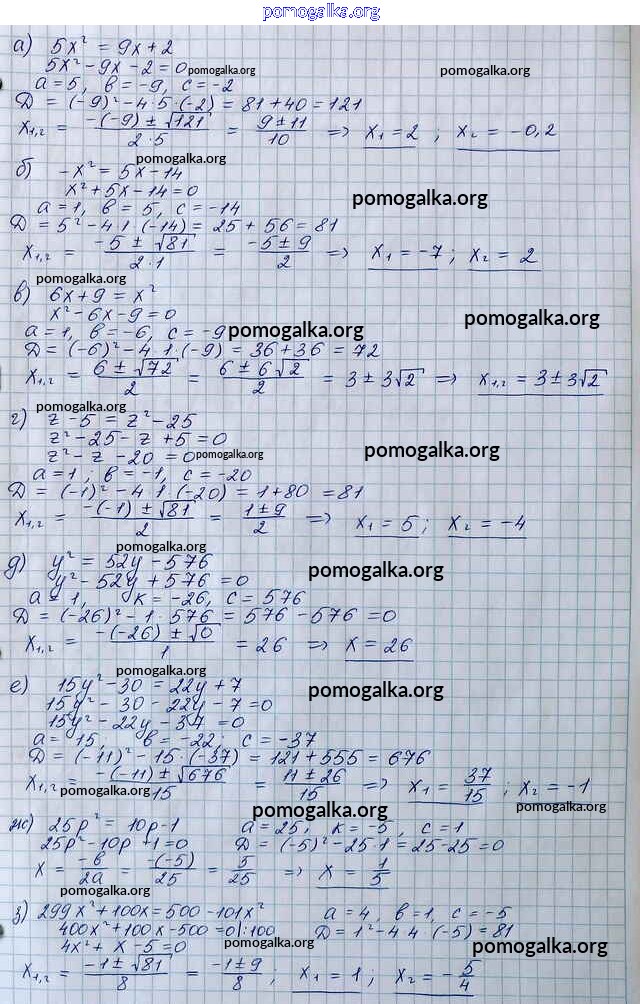 pomogalka.org
а) 5x² = 9x + 2
5x² - 9x - 2 = 0 pomogalka.org pomogalka.org
a = 5, b = -9, c = -2
Д = (-9)² - 4·5·(-2) = 81 + 40 = 121
x₁,₂ = (-(-9) ± √121)/(2·5) = (9 ± 11)/10 => x₁ = 2 ; x₂ = -0,2
pomogalka.org
б) -x² = 5x - 14
x² + 5x - 14 = 0 pomogalka.org
a = 1, b = 5, c = -14
Д = 5² - 4·1·(-14) = 25 + 56 = 81
x₁,₂ = (-5 ± √81)/(2·1) = (-5 ± 9)/2 => x₁ = -7 ; x₂ = 2
pomogalka.org
в) 6x + 9 = x²
x² - 6x - 9 = 0 pomogalka.org
a = 1, b = -6, c = -9 pomogalka.org
Д = (-6)² - 4·1·(-9) = 36 + 36 = 72
x₁,₂ = (6 ± √72)/2 = (6 ± 6√2)/2 = 3 ± 3√2 => x₁,₂ = 3 ± 3√2
pomogalka.org
г) z - 5 = z² - 25
z² - 25 - z + 5 = 0
z² - z - 20 = 0 pomogalka.org pomogalka.org
a = 1 ; b = -1, c = -20
Д = (-1)² - 4·1·(-20) = 1 + 80 = 81
x₁,₂ = (-(-1) ± √81)/2 = (1 ± 9)/2 => x₁ = 5 ; x₂ = -4
pomogalka.org
д) y² = 52y - 576
y² - 52y + 576 = 0 pomogalka.org
a = 1, к = -26, c = 576
Д = (-26)² - 1·576 = 576 - 576 = 0
x₁,₂ = (-(-26) ± √0)/1 = 26 => x = 26
pomogalka.org
е) 15y² - 30 = 22y + 7
15y² - 30 - 22y - 7 = 0 pomogalka.org
15y² - 22y - 37 = 0
a = 15, b = -22; c = -37
Д = (-11)² - 15·(-37) = 121 + 555 = 676
x₁,₂ = (-(-11) ± √676)/15 = (11 ± 26)/15 => x₁ = 37/15 ; x₂ = -1
pomogalka.org pomogalka.org
ж) 25p² = 10p - 1 a = 25, к = -5, c = 1
25p² - 10p + 1 = 0 Д = (-5)² - 25·1 = 25 - 25 = 0
x = -b/2a = -(-5)/25 = 5/25 => x = 1/5
pomogalka.org
з) 299x² + 100x = 500 - 101x² a = 4, b = 1, c = -5
400x² + 100x - 500 = 0 |:100 Д = 1² - 4·4·(-5) = 81
4x² + x - 5 = 0 pomogalka.org pomogalka.org
x₁,₂ = (-1 ± √81)/8 = (-1 ± 9)/8 ; x₁ = 1 ; x₂ = -5/4